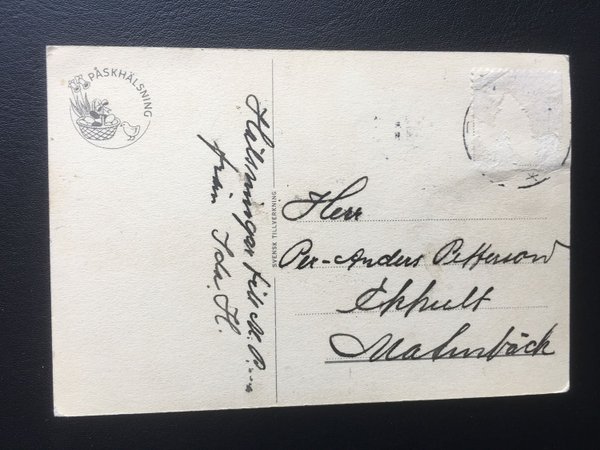 PÅSKHÄLSNING
Hälsningar till M. P.
från Ida H.
SVENSK TILLVERKNING
Herr
Per-Anders Pettersson
Ekhult
Malmbäck